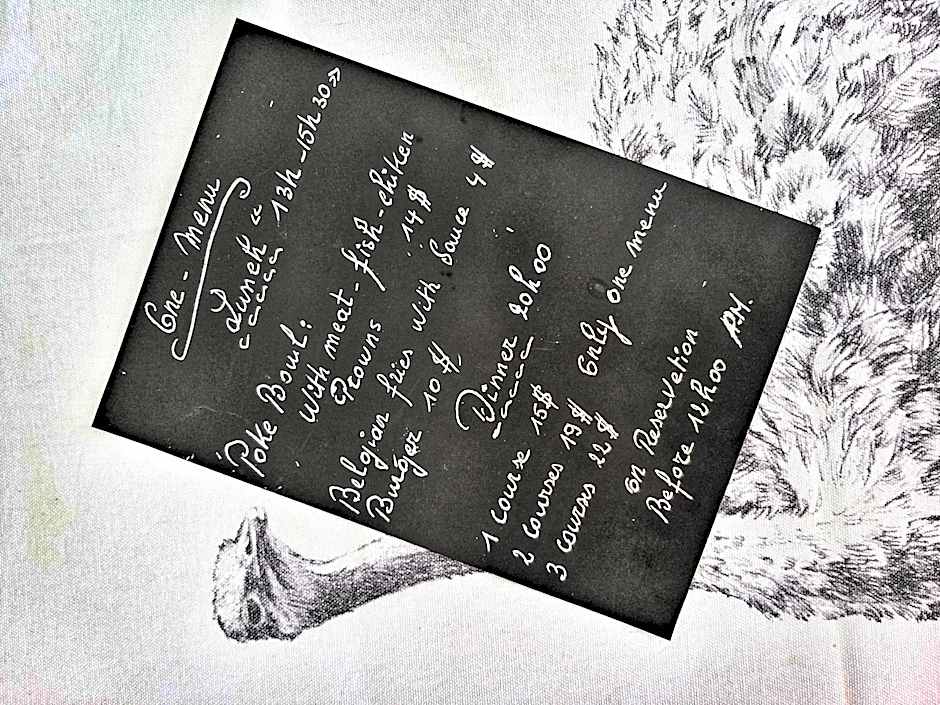 One - Menu
Lunch « 13h - 15h30 »
Poke Bowl:
with meat - fish - chiken
Prowns 14 $
Belgian fries with Sauce 4 $
Burger 10 $
Dinner 20h00
1 course 15$
2 courses 19$ Only one menu
3 courses 22$
On Reservetion
Before 12h00 P.M.